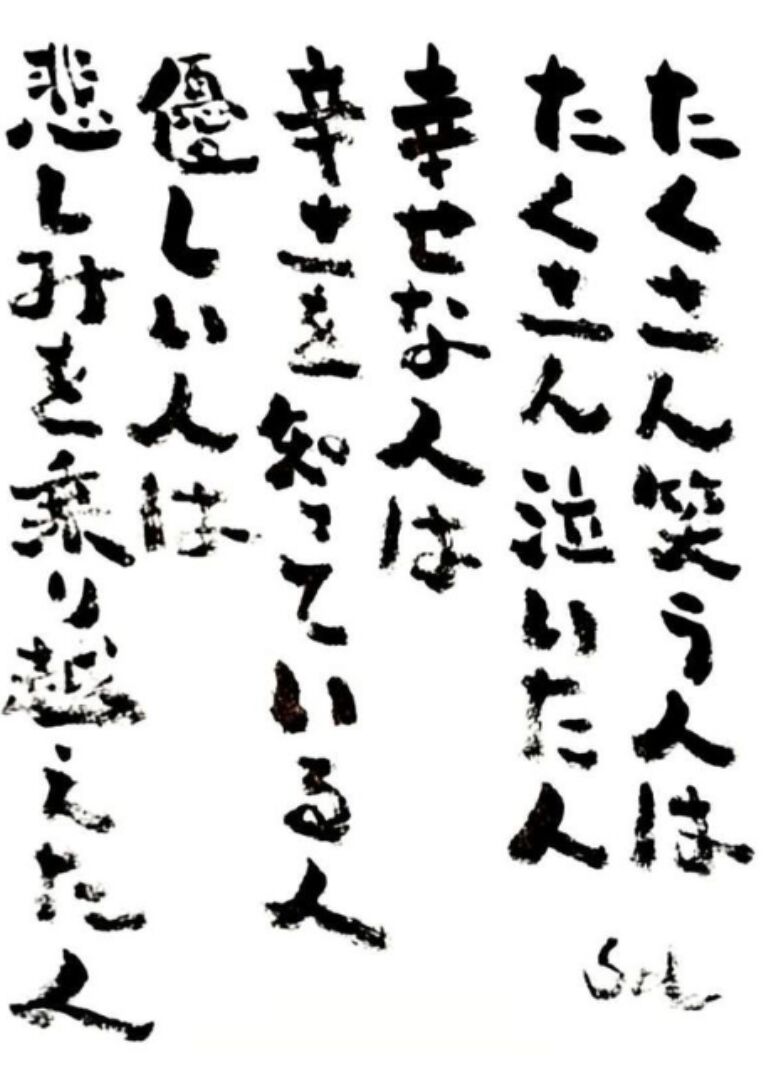 たくさん笑う人は
たくさん泣いた人
幸せな人は
辛さを知っている人
優しい人は
悲しみを乗り越えた人